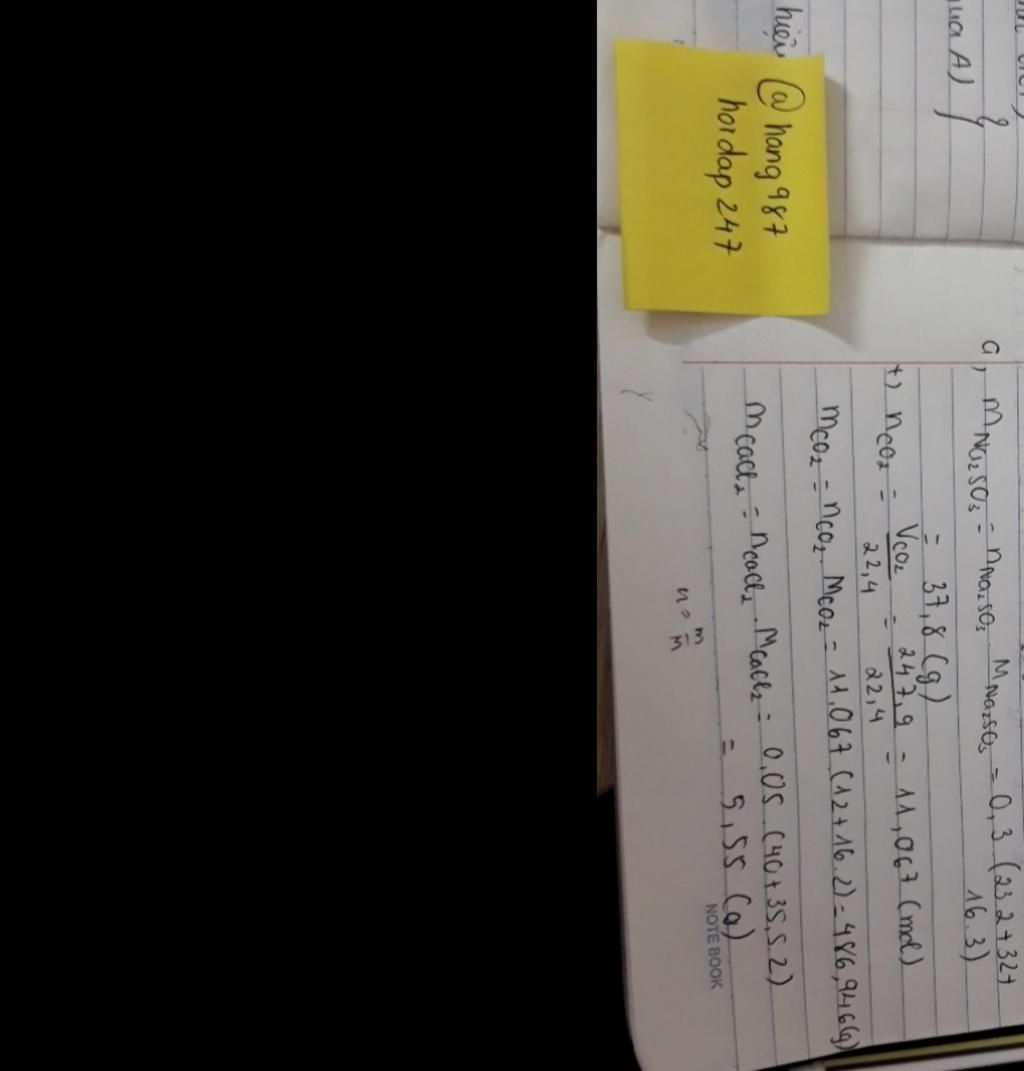 hiện
qua A) }
@hang987
hoidap247
a, mNa₂SO₃ = nNa₂SO₃. MNa₂SO₃ = 0,3 (23.2+32+
16.3)
= 37,8 (g)
+) nCO₂ = VCO₂/22,4 = 247,9/22,4 = 11,067 (mol)
mCO₂ = nCO₂. MCO₂ = 11,067 (12+16.2) = 486,946(g)
mCaCl₂ = nCaCl₂. MCaCl₂ = 0,05 (40+35,5.2)
= 5,55 (g)
n = m/m
NOTE BOOK